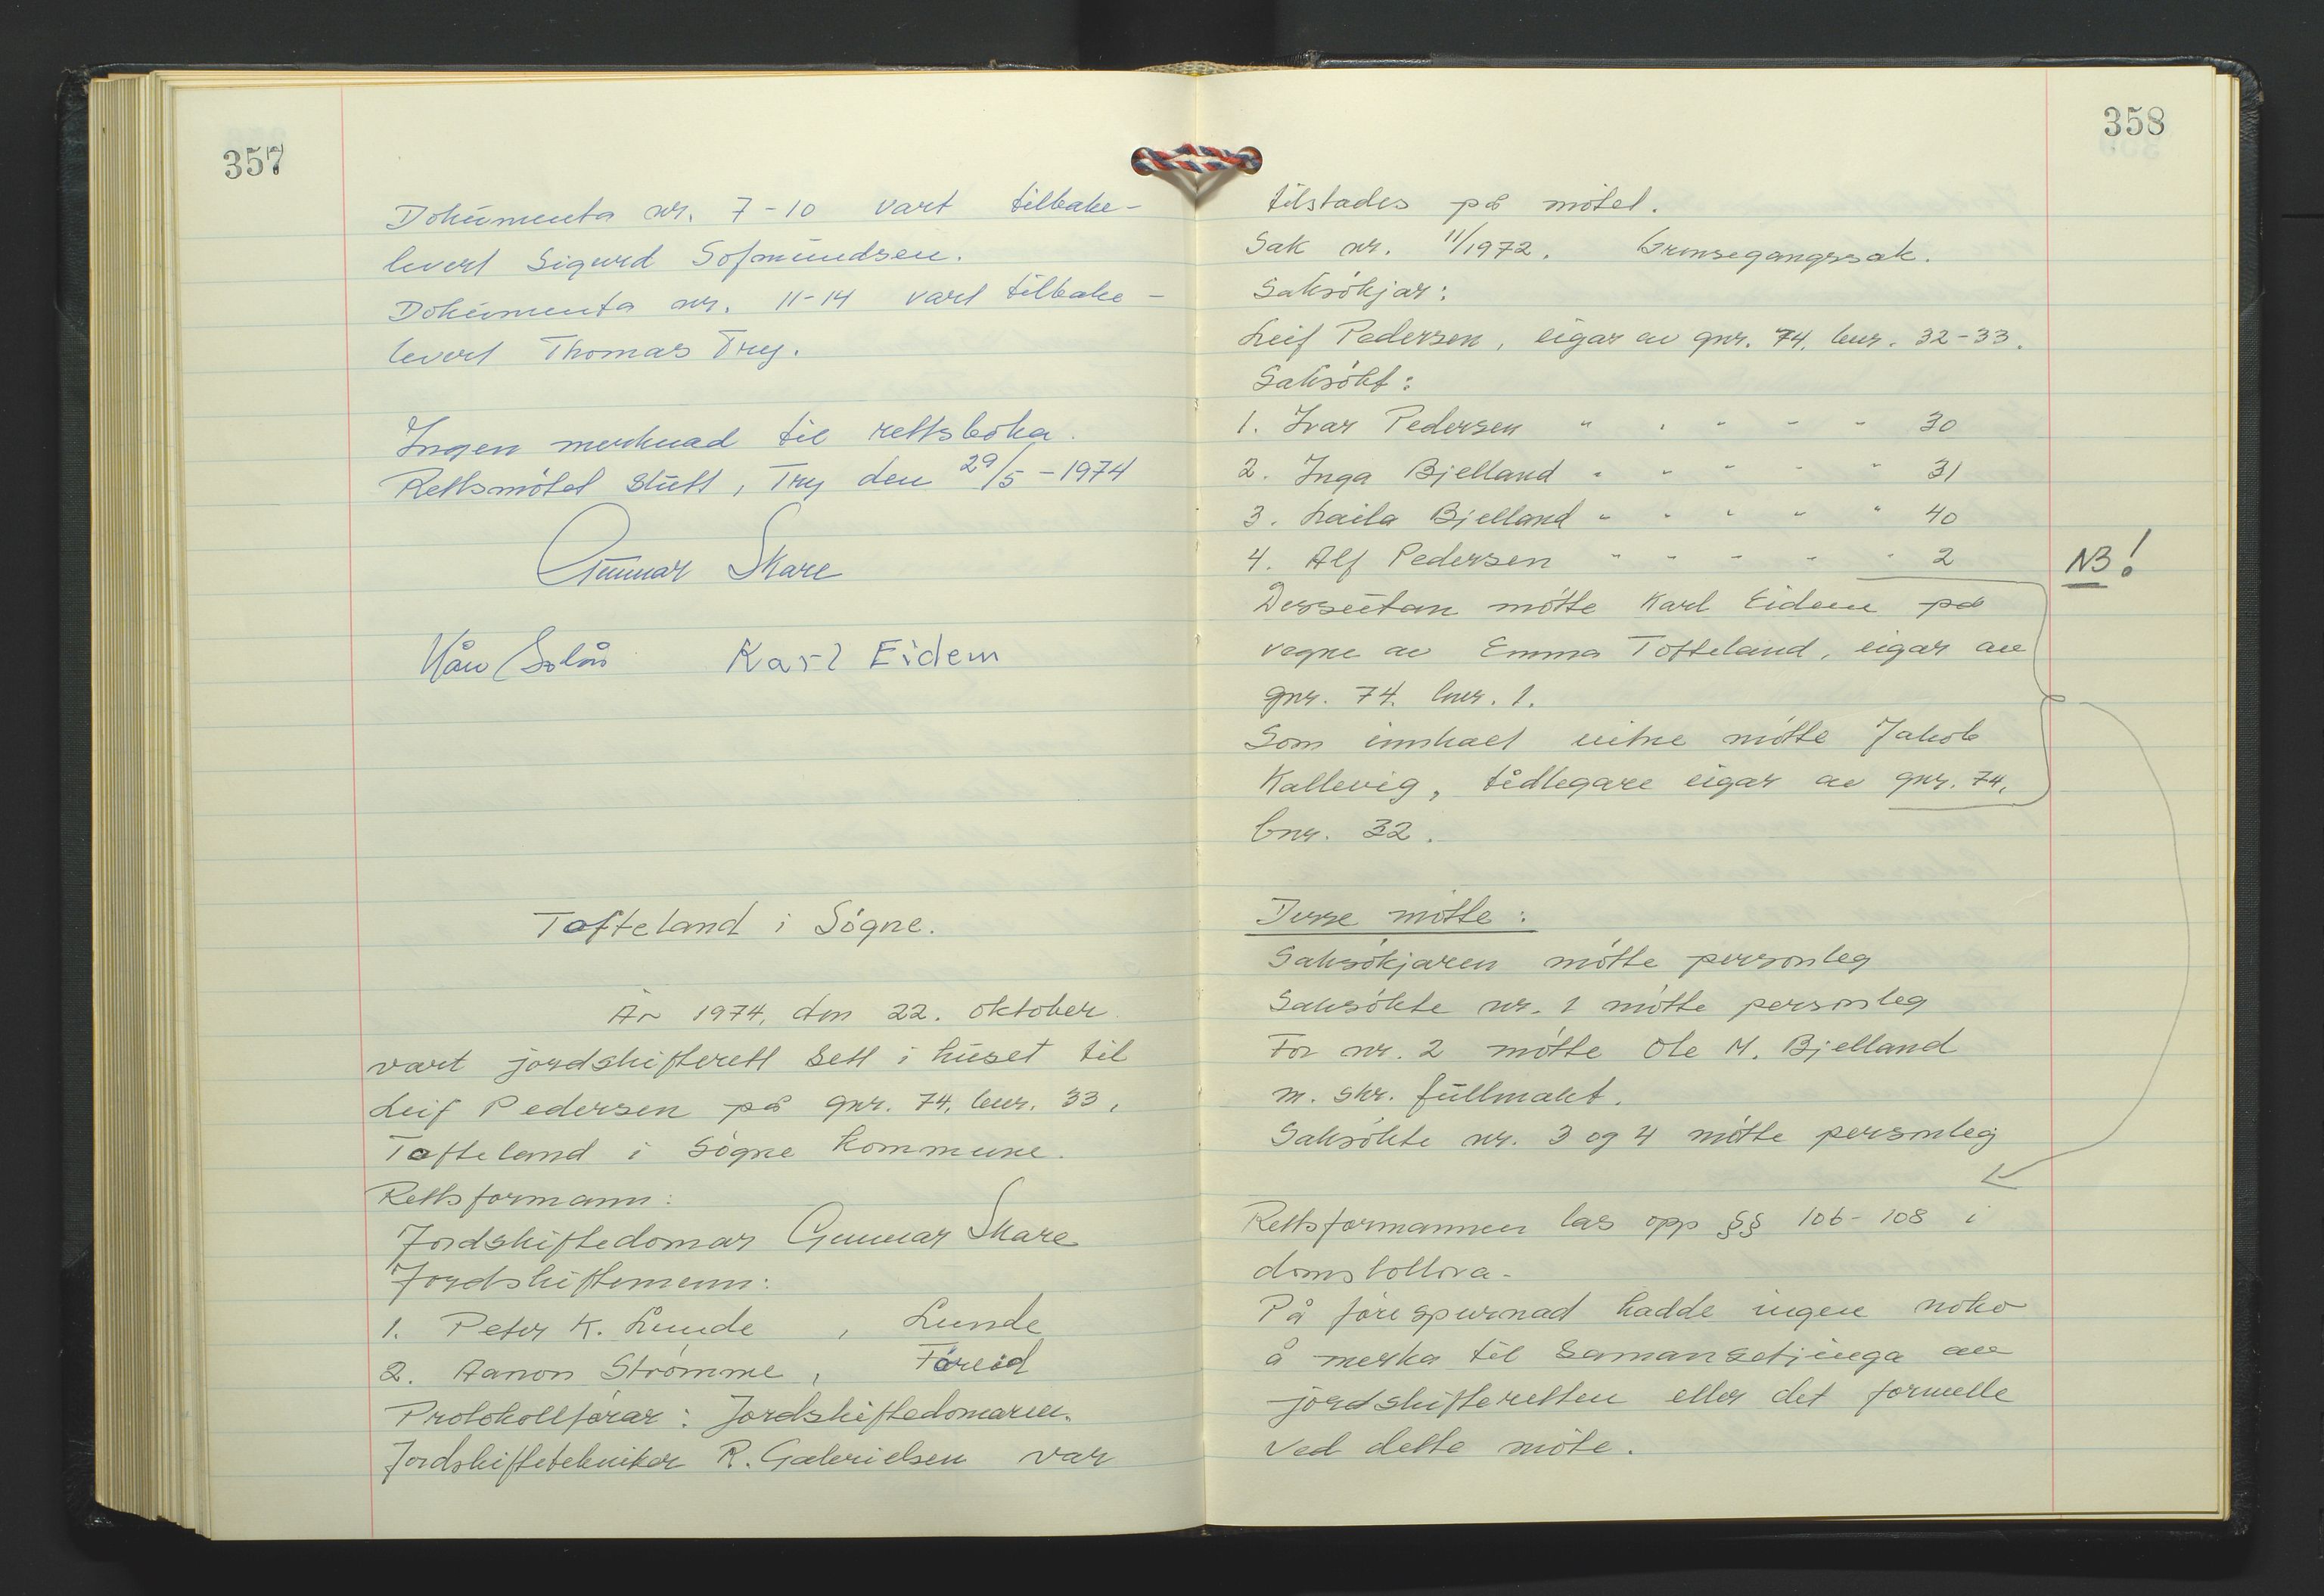 357
Dokumenta nr. 7-10 vart tilbake-
levert Sigurd Sofmundsen.
Dokumenta nr. 11-14 vart tilbake-
levert Thomas Try.
Ingen merknad til rettsboka.
Rettsmötet slutt, Try den 29/5-1974
Gunnar Skare
Karl Eidem
Tofteland i Sögne.
År 1974, den 22. oktober
vart jordskifterett sett i huset til
Leif Pedersen på gnr. 74, bnr. 33,
Tofteland i Sögne kommune.
Rettsformann:
Jordskiftedomar Gunnar Skare
Jordskiftemenn:
1. Peter K. Lunde, Lunde
2. Aanon Strømme,
Protokollførar: Jordskiftedomaren.
Jordskiftetekniker R. Gabrielsen var
358
tilstades på mötet.
Sak nr. 11/1972. Grensegangssak.
Saksökjar:
Leif Pedersen, eigar av gnr. 74, bnr. 32-33.
Saksökt:
1. Ivar Pedersen " " " " " 30
2. Inga Bjelland " " " " " 31
3. Laila Bjelland " " " " " 40
4. Alf Pedersen " " " " " 2
NB!
Dessutan mötte Karl Eidem på
vegne av Emma Tofteland, eigar av
gnr. 74. bnr. 1.
Som innkalt vitne mötte Jakob
Kallevig, tidlegare eigar av gnr. 74,
bnr. 32.
Desse mötte:
Saksökjaren mötte personleg
Saksökte nr. 1 mötte personleg
For nr. 2 mötte Ole M. Bjelland
m. skr. fullmakt.
Saksökte nr. 3 og 4 mötte personleg
Rettsformannen las opp §§ 106-108 i
domstollova.
På förespurnad hadde ingen noko
å merka til samansetjinga av
jordskifteretten eller det formelle
ved dette möte.